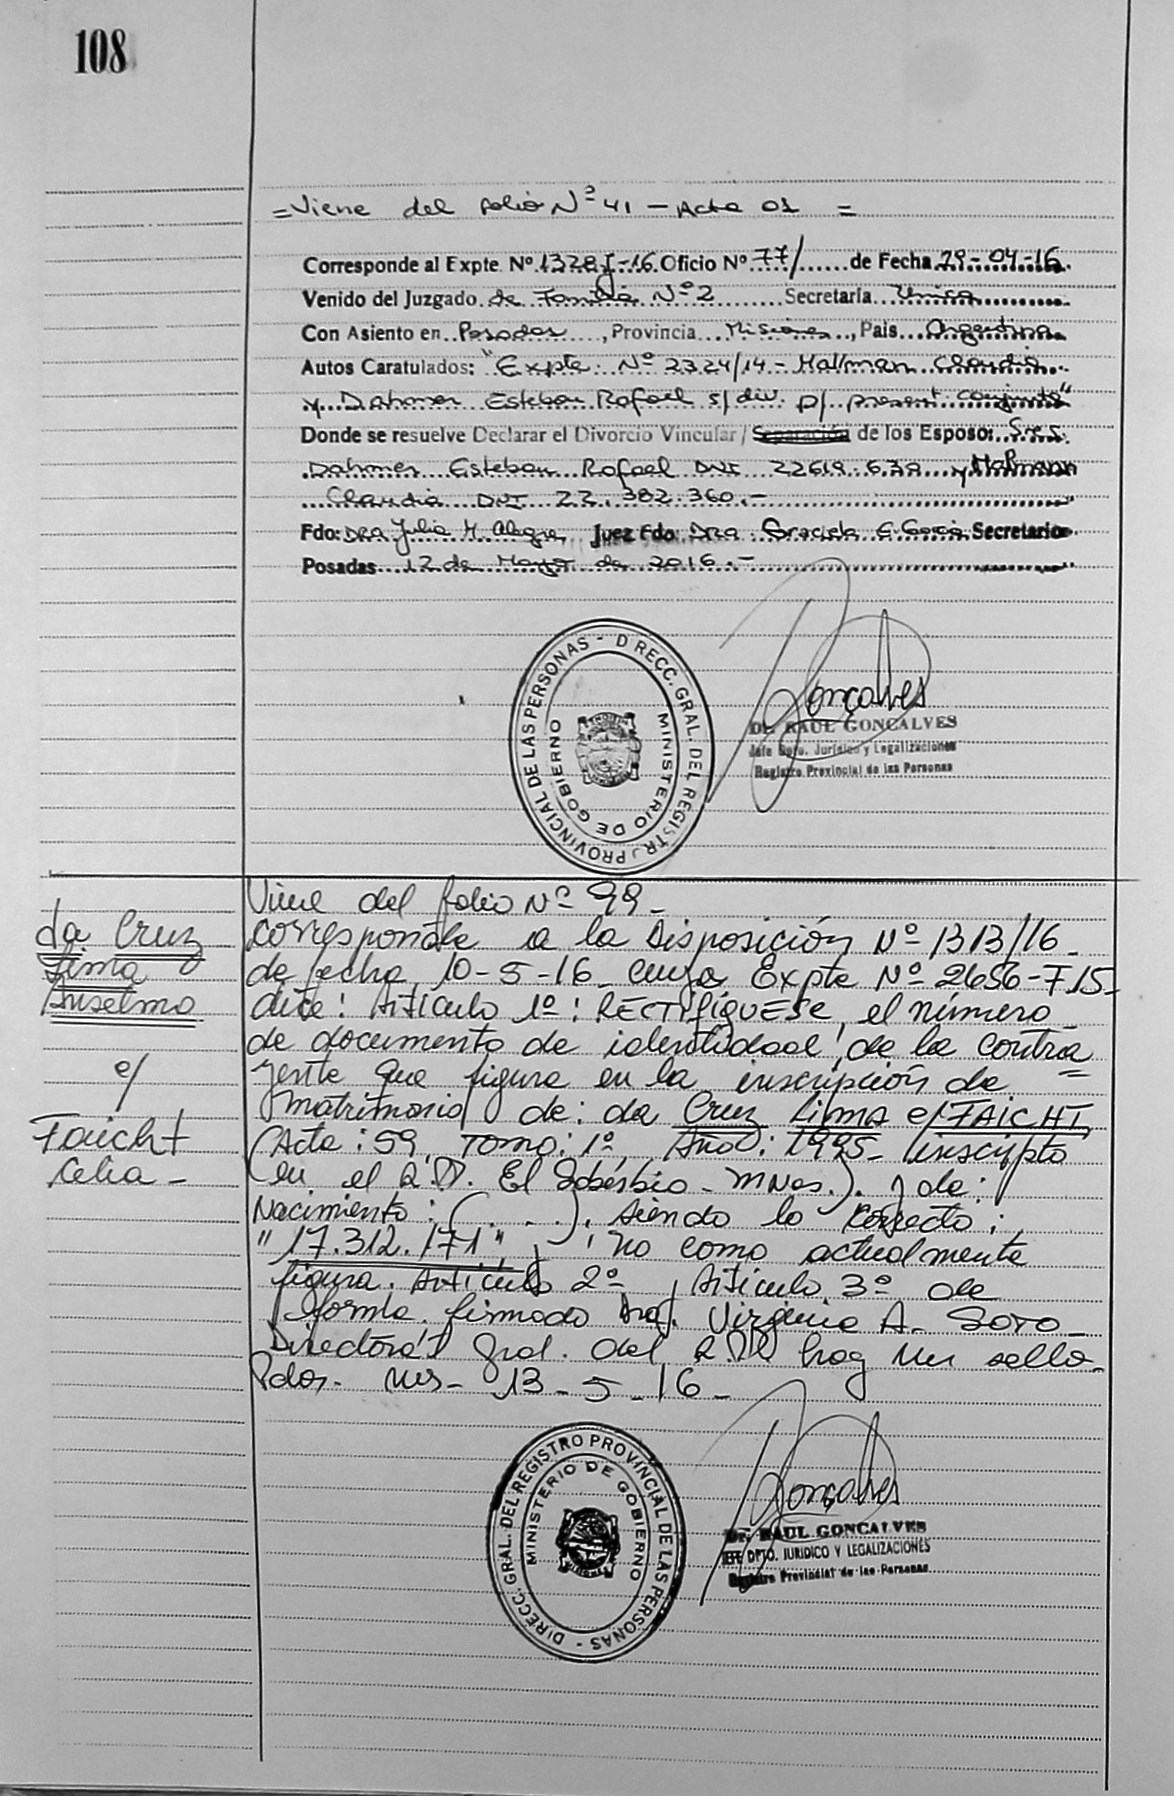 108
= Viene del folio Nº 41 - Acta 01 =
Corresponde al Expte. Nº 1328 -16 Oficio Nº 77/ de Fecha 29-04-16.
Venido del Juzgado de Familia Nº 2 Secretaría Unica
Con Asiento en Posadas, Provincia Misiones, País Argentina
Autos Caratulados: "Expte. Nº 2324/14 - Hallman Claudia
y Dahmer Esteban Rafael s/ div. p/ present. conjunta"
Donde se resuelve Declarar el Divorcio Vincular / Separación de los Esposo: Sres.
Dahmer Esteban Rafael DNI 22619.639 y Hallmann
Claudia DNI 22.382.360.-
Fdo: Dra Julia M. Alegre Juez Fdo: Dra Graciela E. Secretario
Posadas 12 de Mayo de 2016.-
DIRECC. GRAL. DEL REGISTRO PROVINCIAL DE LAS PERSONAS -
MINISTERIO DE GOBIERNO
Gonçalves
Dr. RAUL GONCALVES
Jefe Dpto. Jurídico y Legalizaciones
Registro Provincial de las Personas
da Cruz
Lima
Anselmo
e/
Faicht
Celia -
Viene del folio Nº 99 -
corresponde a la Disposición Nº 1313/16 -
de fecha 10-5-16 - cuya Expte Nº 2656-F-15 -
dice: Artículo 1º: RECTIFÍQUESE, el número
de documento de identidad, de la contra
yente que figura en la inscripción de
matrimonio de: da Cruz Lima e/ FAICHT
(Acta: 59, Tomo: 1º, Año: 1995 - inscripto
en el R.P. El Soberbio - Mnes.). y de:
Nacimiento: (. . .), siendo lo correcto:
"17.312.171", no como actualmente
figura. Artículo 2º, Artículo 3º de
forma. firmado Virginia A. Soto -
Directora Gral. del R.P. hay un sello -
Pdas - Mns - 13 - 5 - 16 -
DIRECC. GRAL. DEL REGISTRO PROVINCIAL DE LAS PERSONAS -
MINISTERIO DE GOBIERNO
MISIONES
Gonçalves
Dr. RAUL GONCALVES
JEFE DPTO. JURIDICO Y LEGALIZACIONES
Registro Provincial de las Personas